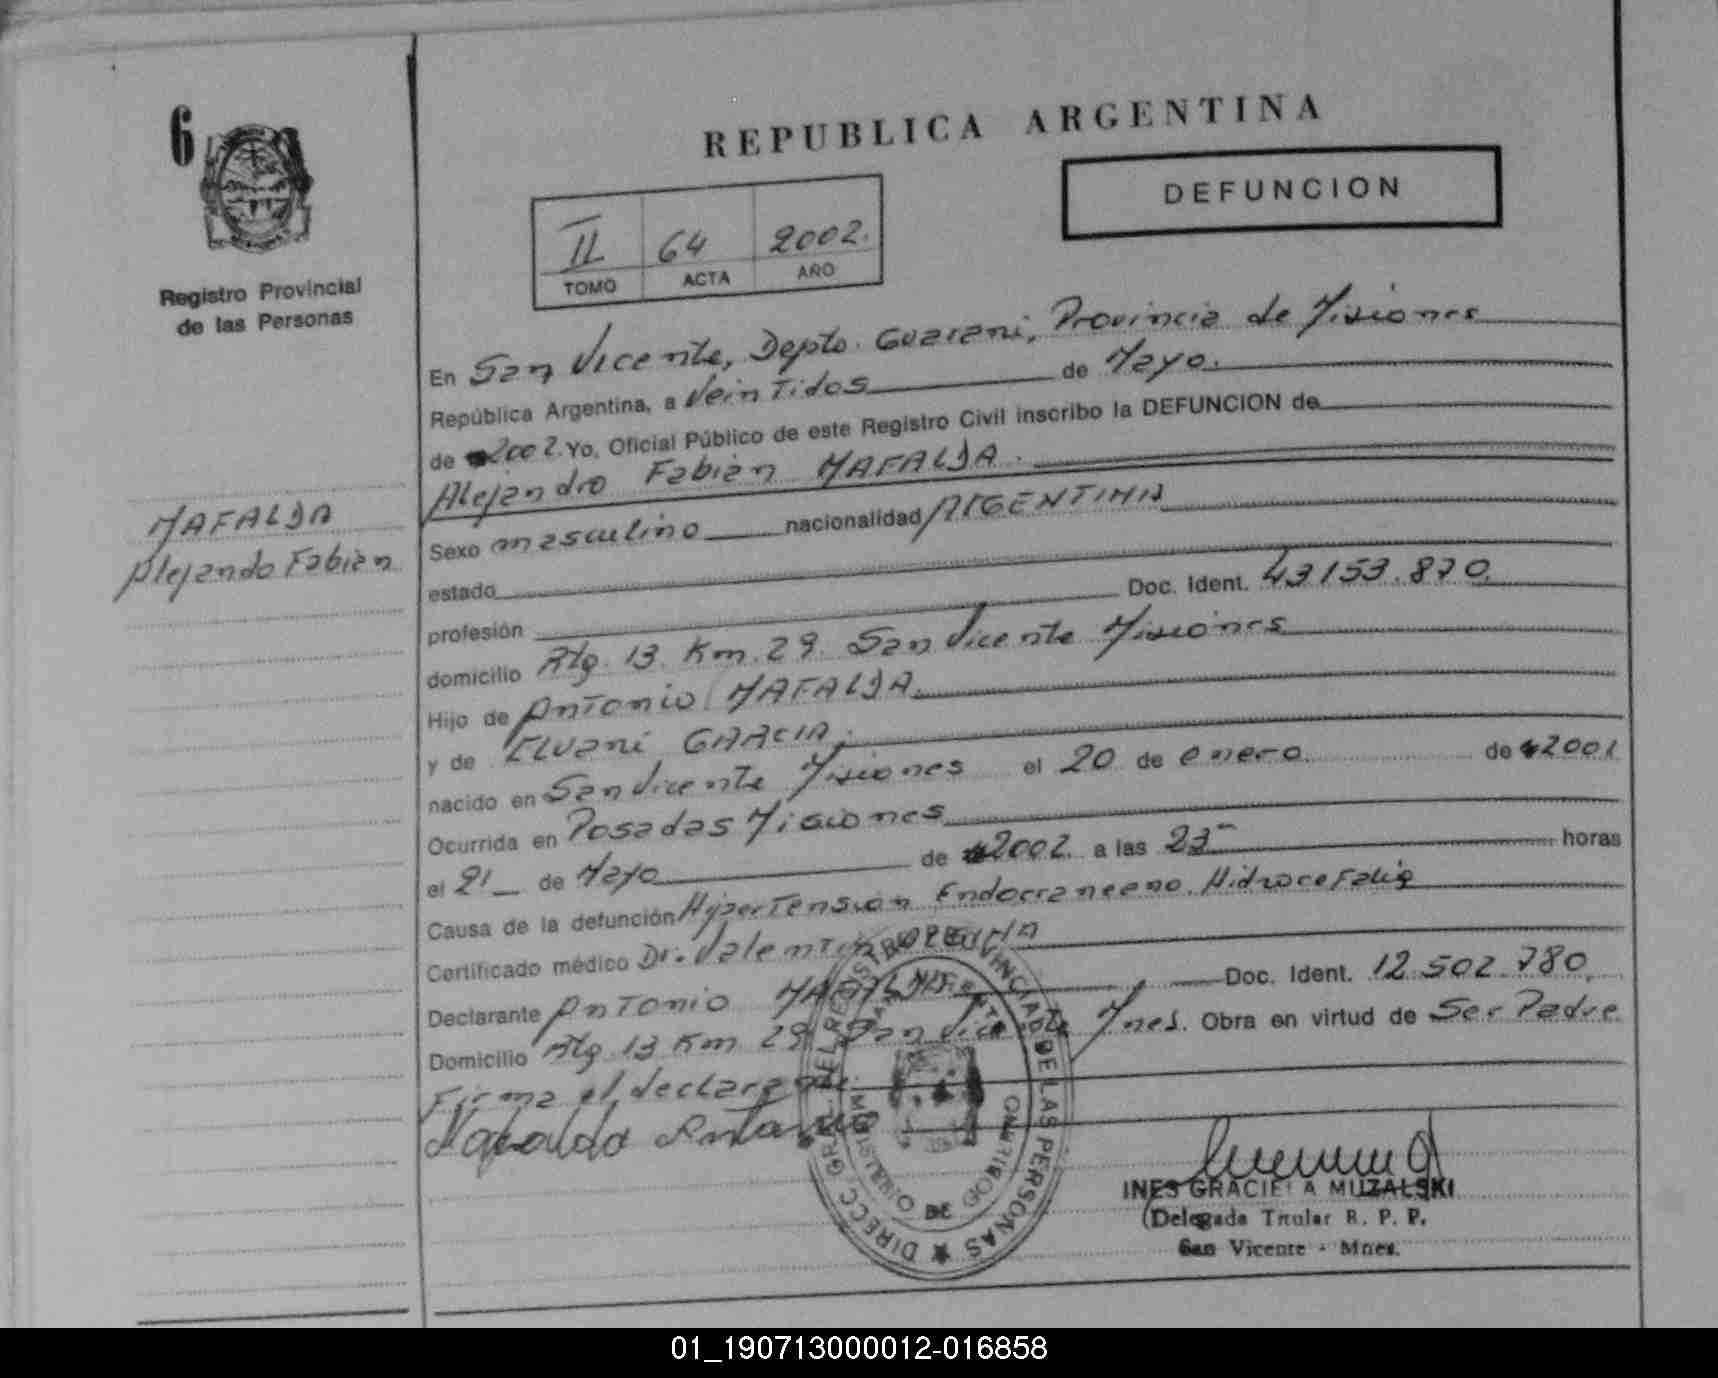 6
Registro Provincial
de las Personas
MAFALDA
Alejando Fabian
REPUBLICA ARGENTINA
DEFUNCION
II 64 2002.
TOMO ACTA AÑO
En San Vicente, Depto. Guarani, Provincia de Misiones
República Argentina, a Veintidos de Mayo.
de 2002. Yo, Oficial Público de este Registro Civil inscribo la DEFUNCION de
Alejandro Fabian MAFALDA.
Sexo masculino nacionalidad ARGENTINA
estado
profesión Doc. Ident. 43153.870.
domicilio Rtg. 13. Km. 29. San Vicente Misiones
Hijo de Antonio MAFALDA.
y de Elvani GARCIA.
nacido en San Vicente Misiones el 20 de enero de 2001
Ocurrida en Posadas Misiones
el 21 de Mayo de 2002. a las 23 horas
Causa de la defunción Hypertension Endocraneano. Hidrocefalia
Certificado médico Dr. Valentin
Declarante Antonio MAFALDA Doc. Ident. 12.502.780.
Domicilio Rtg. 13 Km 29 San Vicente Mnes. Obra en virtud de Ser Padre
Firma el declarante.
Mafalda Antonio
DIRECC. GRAL. DEL REGISTRO PROVINCIAL DE LAS PERSONAS
MINISTERIO DE GOBIERNO
INES GRACIELA MUZALSKI
(Delegada Titular R. P. P.
San Vicente - Mnes.
01_190713000012-016858